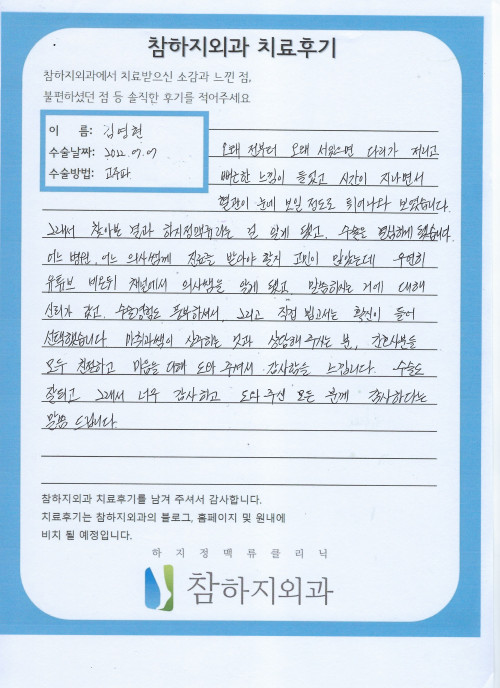 참하지외과 치료후기
참하지외과에서 치료받으신 소감과 느낀 점,
불편하셨던 점 등 솔직한 후기를 적어주세요
이 름: 김영현
수술날짜: 2022.07.07
수술방법: 고주파
오래 전부터 오래 서있으면 다리가 저리고
뻐근한 느낌이 들었고 시간이 지나면서
혈관이 눈에 보일 정도로 튀어나와 보였습니다.
그래서 찾아본 결과 하지정맥류라는 걸 알게 됐고, 수술은 결심하게 됐습니다.
어느 병원, 어느 의사쌤께 진료를 받아야 할지 고민이 있었는데 우연히
유튜브 비온뒤 채널에서 의사쌤을 알게 됐고, 말씀하시는 거에 대해
신뢰가 갔고, 수술경험도 풍부하셔서, 그리고 직접 뵙고서는 확신이 들어
선택했습니다. 마취과쌤이 상주하는 것과 상담해 주시는 분, 간호사분들
모두 친절하고 마음을 다해 도와 주셔서 감사함을 느낍니다. 수술도
잘되고 그래서 너무 감사하고 도와 주신 모든 분께 감사하다는
말씀 드립니다.
참하지외과 치료후기를 남겨 주셔서 감사합니다.
치료후기는 참하지외과의 블로그, 홈페이지 및 원내에
비치 될 예정입니다.
하지정맥류클리닉
참하지외과